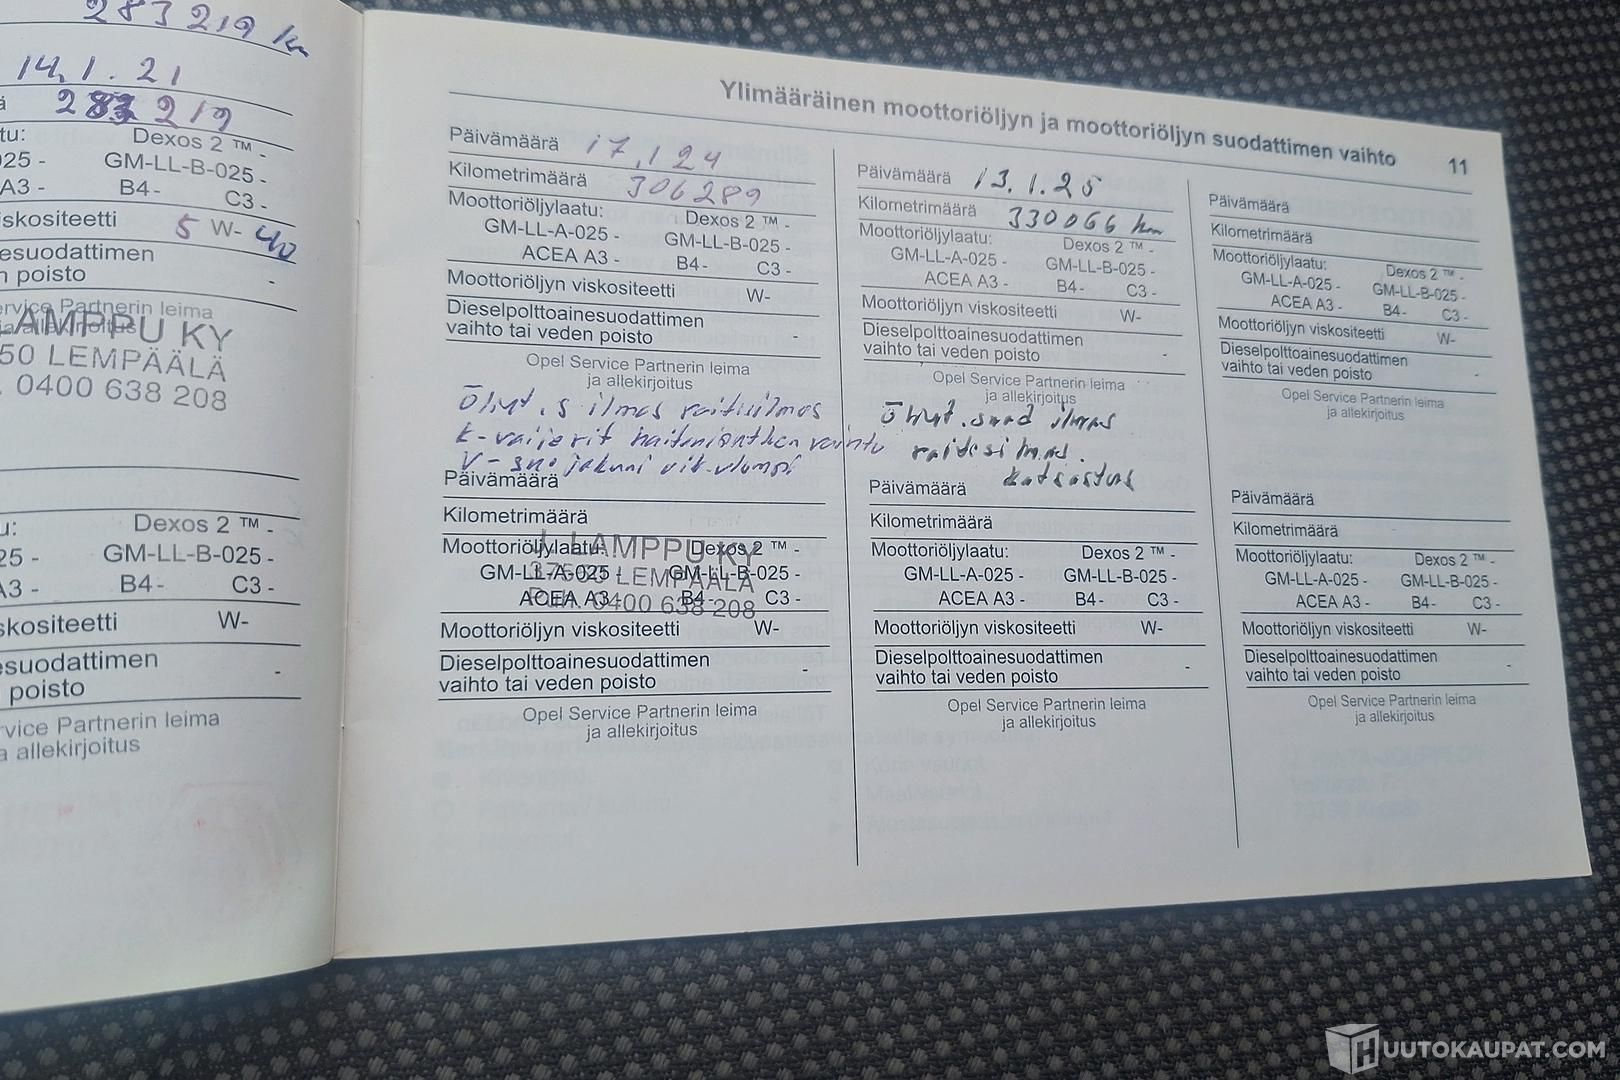 283219 km
14.1.21
ä 283 219
tu: Dexos 2 ™ -
025 - GM-LL-B-025 -
A3 - B4 - C3 -
skositeetti 5 W- 40
esuodattimen
n poisto -
ervice Partnerin leima
ja allekirjoitus
AMPPU KY
50 LEMPÄÄLÄ
. 0400 638 208
u: Dexos 2 ™ -
25 - GM-LL-B-025 -
A3 - B4 - C3 -
skositeetti W-
esuodattimen
poisto -
rvice Partnerin leima
a allekirjoitus
Ylimääräinen moottoriöljyn ja moottoriöljyn suodattimen vaihto 11
Päivämäärä 17.1 24
Kilometrimäärä 306289
Moottoriöljylaatu: Dexos 2 ™ -
GM-LL-A-025 - GM-LL-B-025 -
ACEA A3 - B4 - C3 -
Moottoriöljyn viskositeetti W-
Dieselpolttoainesuodattimen
vaihto tai veden poisto -
Opel Service Partnerin leima
ja allekirjoitus
Öljyt. s ilmas raitisilmas
vaihto
Päivämäärä
Kilometrimäärä
Moottoriöljylaatu: Dexos 2 ™ -
GM-LL-A-025 - GM-LL-B-025 -
ACEA A3 - B4 - C3 -
J. LAMPPU KY
37500 LEMPÄÄLÄ
Puh. 0400 638 208
Moottoriöljyn viskositeetti W-
Dieselpolttoainesuodattimen
vaihto tai veden poisto
Opel Service Partnerin leima
ja allekirjoitus
Päivämäärä 13.1.25
Kilometrimäärä 330066 km
Moottoriöljylaatu: Dexos 2 ™ -
GM-LL-A-025 - GM-LL-B-025 -
ACEA A3 - B4 - C3 -
Moottoriöljyn viskositeetti W-
Dieselpolttoainesuodattimen
vaihto tai veden poisto -
Opel Service Partnerin leima
ja allekirjoitus
Öljyt. suod ilmas
raitisilmas.
katsastus
Päivämäärä
Kilometrimäärä
Moottoriöljylaatu: Dexos 2 ™ -
GM-LL-A-025 - GM-LL-B-025 -
ACEA A3 - B4 - C3 -
Moottoriöljyn viskositeetti W-
Dieselpolttoainesuodattimen
vaihto tai veden poisto -
Opel Service Partnerin leima
ja allekirjoitus
Päivämäärä
Kilometrimäärä
Moottoriöljylaatu: Dexos 2 ™ -
GM-LL-A-025 - GM-LL-B-025 -
ACEA A3 - B4 - C3 -
Moottoriöljyn viskositeetti W-
Dieselpolttoainesuodattimen
vaihto tai veden poisto -
Opel Service Partnerin leima
ja allekirjoitus
Päivämäärä
Kilometrimäärä
Moottoriöljylaatu: Dexos 2 ™ -
GM-LL-A-025 - GM-LL-B-025 -
ACEA A3 - B4 - C3 -
Moottoriöljyn viskositeetti W-
Dieselpolttoainesuodattimen
vaihto tai veden poisto -
Opel Service Partnerin leima
ja allekirjoitus
HUUTOKAUPAT.COM